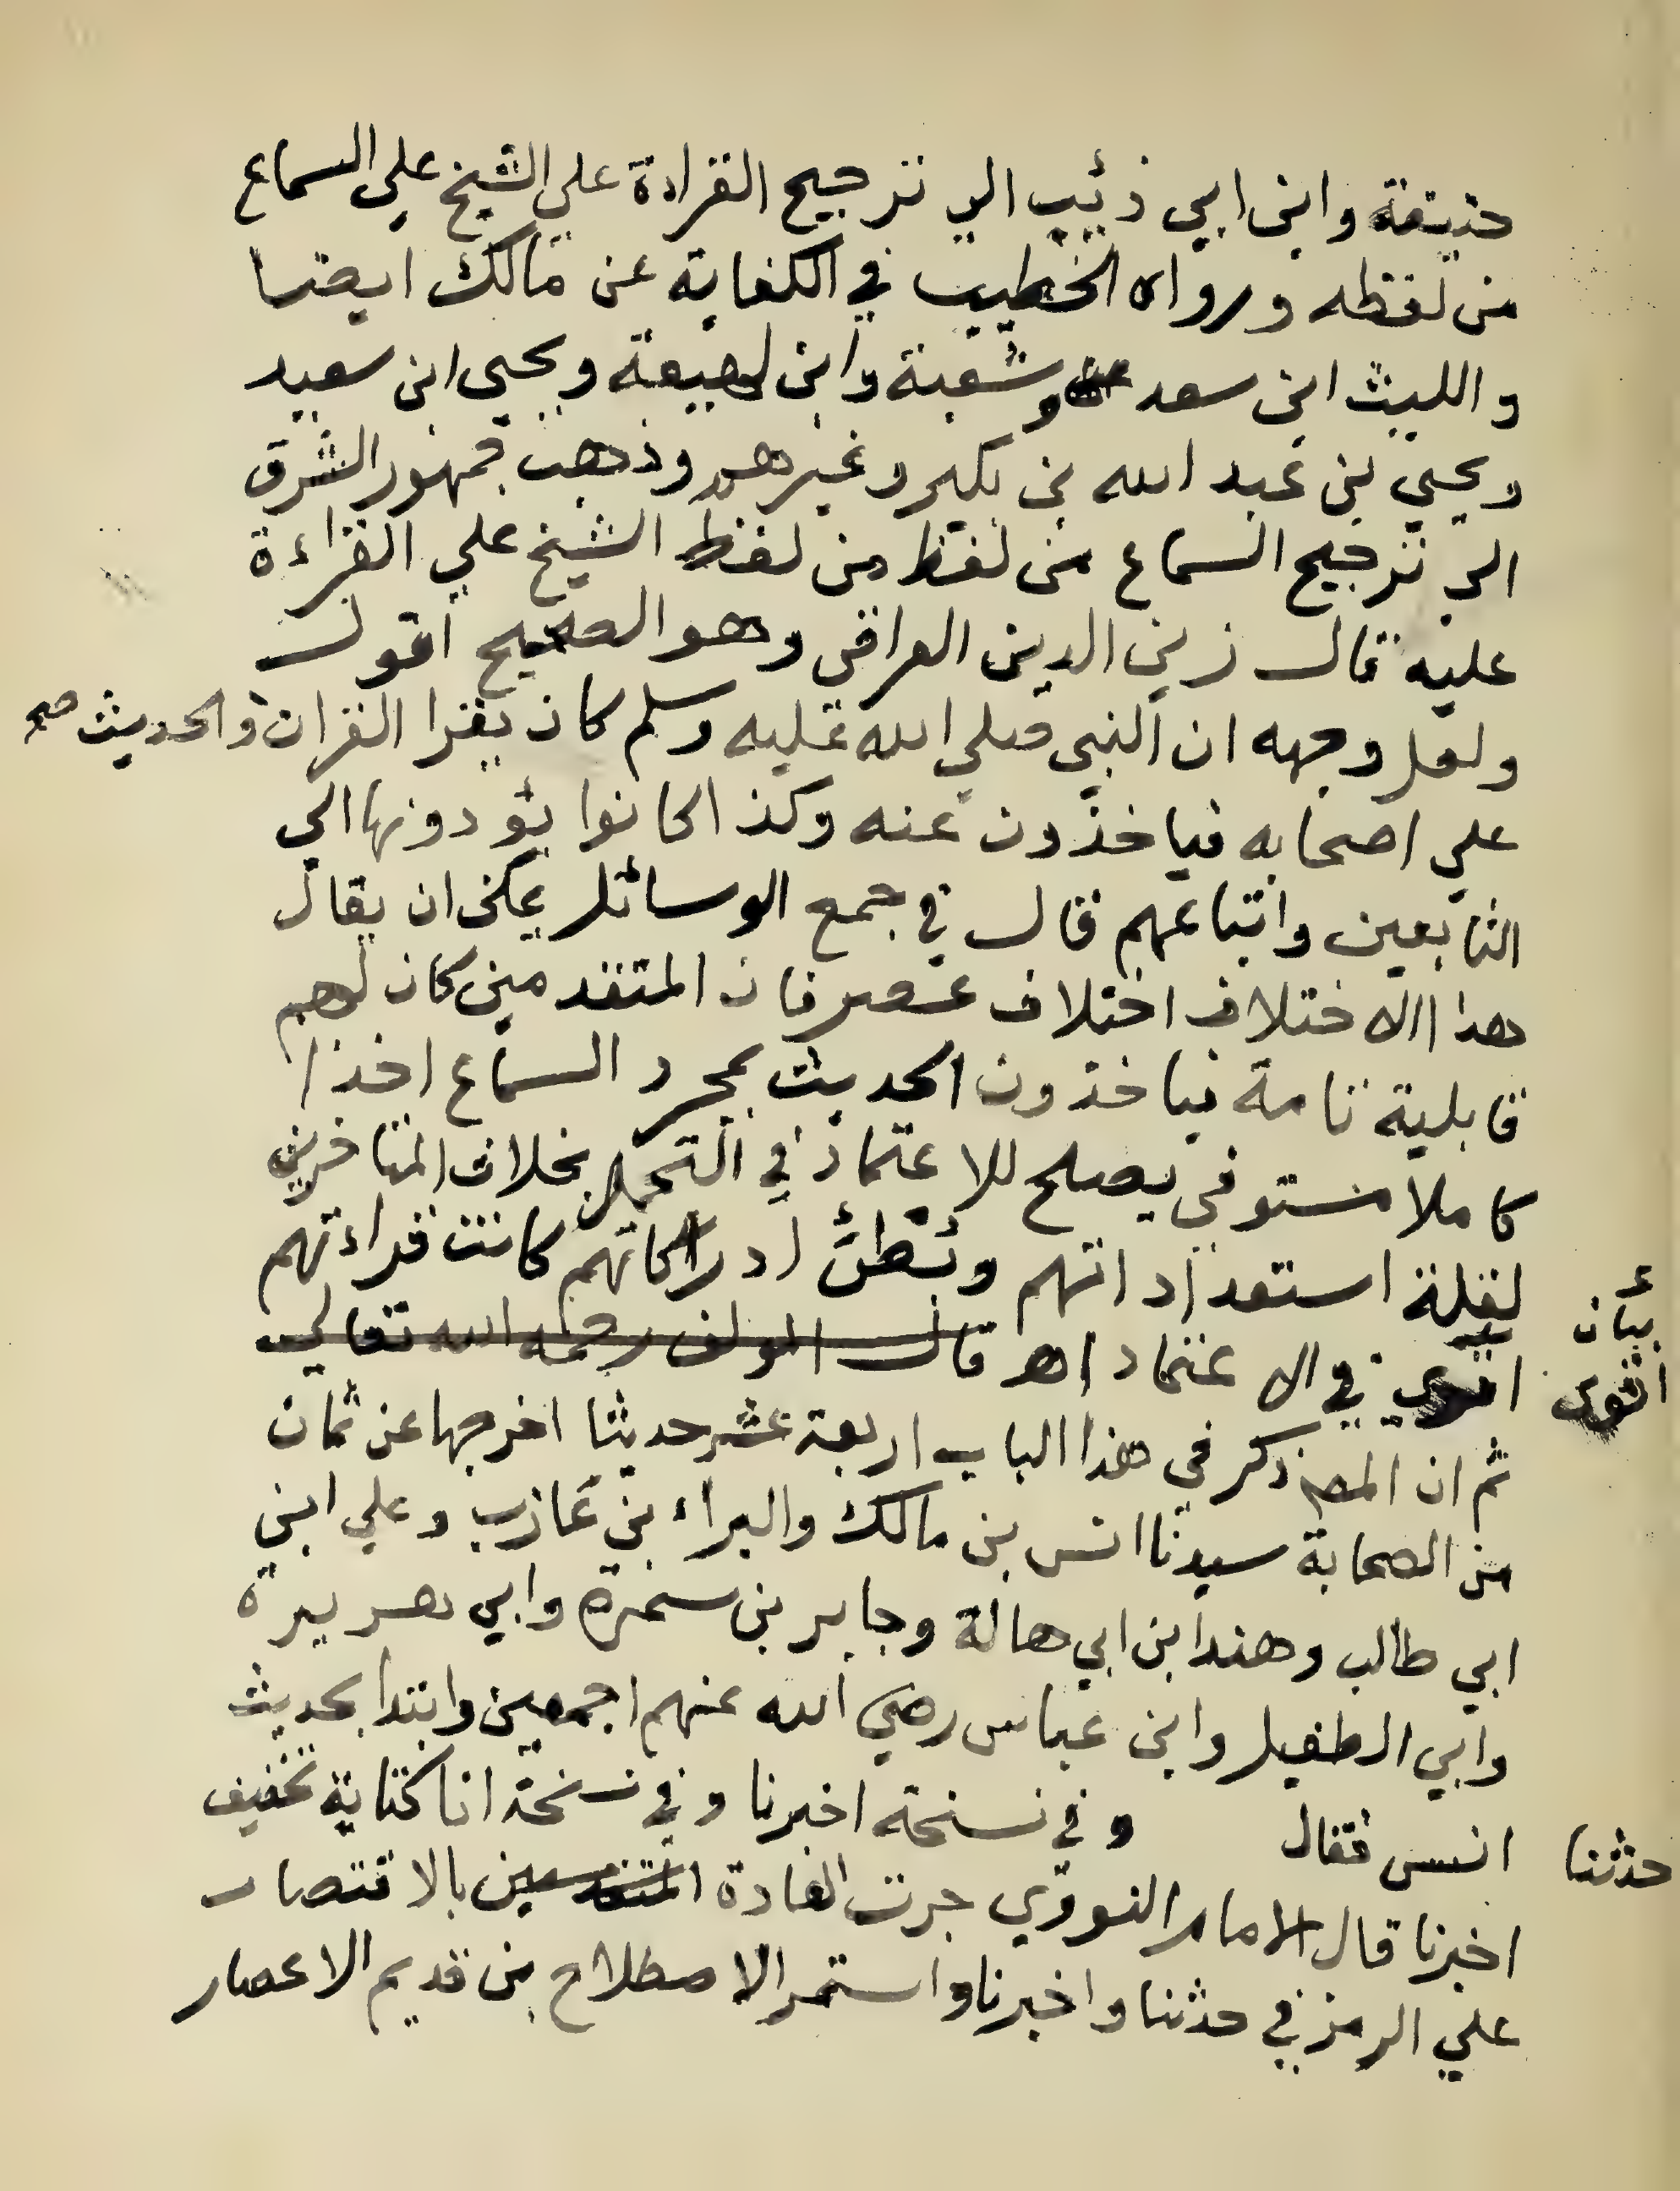 حنيفة وابن ابي ذئيب الي ترجيح القراءة علي الشيخ علي السماع
من لفظه ورواه الخطيب في الكفاية عن مالك ايضا
والليث ابن سعد وشعبة وابن لهيعة ويحيى ابن سعيد
ويحيي بن عبد الله بن بكير وغيرهم وذهب جمهور الشرق
الي ترجيح السماع من لفظ من لفظ الشيخ علي القراءة
عليه قال زين الدين العراقي وهو الصحيح اقول
ولعل وجهه ان النبي صلي الله عليه وسلم كان يقرا القران والحديث صح
علي اصحابه فياخذون عنه وكذا كانوا يؤدونها الي
التابعين واتباعهم قال في جمع الوسائل يمكن ان يقال
هذا الاختلاف اختلاف عصر فان المتقدمين كان لهم
قابلية تامة فياخذون الحديث بمجرد السماع اخذا
كاملا مستوفي يصلح للاعتماد في التحمل بخلاف المتاخرين
لقلة استعداداتهم وبُطئ ادراكاتهم كانت قراءتهم
اقوي في الاعتماد اهر قال المولف رحمه الله تعالي
بيان
اقوى
ثم ان المص ذكر في هذا الباب اربعة عشر حديثا اخرجها عن ثمان
من الصحابة سيدنا انس بن مالك والبراء بن عازب وعلي ابن
ابي طالب وهند ابن ابي هالة وجابر بن سمرة وابي هريرة
وابي الطفيل وابن عباس رضي الله عنهم اجمعين وابتدا بحديث
انس فقال و في نسخة اخبرنا وفي نسخة انا كتابة تخفيف
حدثنا
اخبرنا قال الامام النووي جرت العادة المتقدمين بالاقتصار
علي الرمز في حدثنا واخبرنا واستمر الاصطلاح من قديم الاعصار